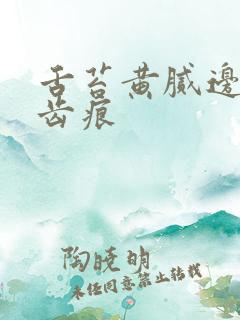 舌苔黄腻邊
齿痕
陶晓明
未经同意禁止转载